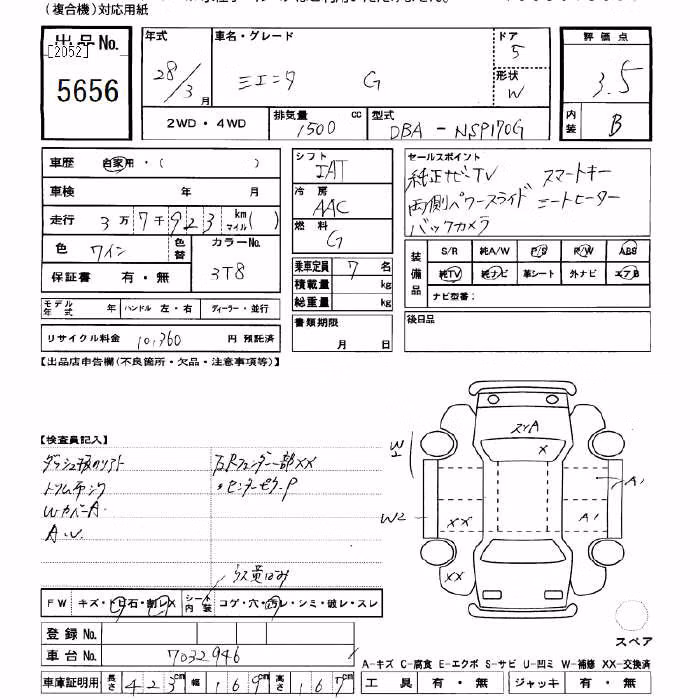 (複合機)対応用紙
出品No.
[2052]
5656
年式
28/3月
車名・グレード
シエンタ G
ドア
5
形状
W
評価点
3.5
内装
B
2WD・4WD
排気量 1500 cc
型式
DBA-NSP170G
車歴 自家用・( )
車検 年 月
走行 3万7千923 km マイル( )
色 ワイン
色替
カラーNo.
3T8
保証書 有・無
モデル年式 年
ハンドル 左・右
ディーラー・並行
リサイクル料金 10,360 円 預託済
シフト
IAT
冷房
AAC
燃料
G
乗車定員 7 名
積載量 kg
総重量 kg
書類期限
月 日
セールスポイント
純正ナビTV スマートキー
両側パワースライド シートヒーター
バックカメラ
装備品
S/R 純A/W P/S P/W ABS
純TV 純ナビ 革シート 外ナビ エアB
ナビ型番:
後日品
【出品店申告欄(不良箇所・欠品・注意事項等)】
【検査員記入】
右Rフェンダー一部XX
・センターピラーP
Wカバー A
スリA
X
W2
A1
W2
XX
A1
XX
FW キズ・トビ石・割レX
シート内装 コゲ・穴・汚レ・シミ・破レ・スレ
登録No.
車台No. 7032946
車庫証明用 長さ 423cm 幅 169cm 高さ 167cm
スペア
A-キズ C-腐食 E-エクボ S-サビ U-凹ミ W-補修 XX-交換済
工具 有・無 ジャッキ 有・無